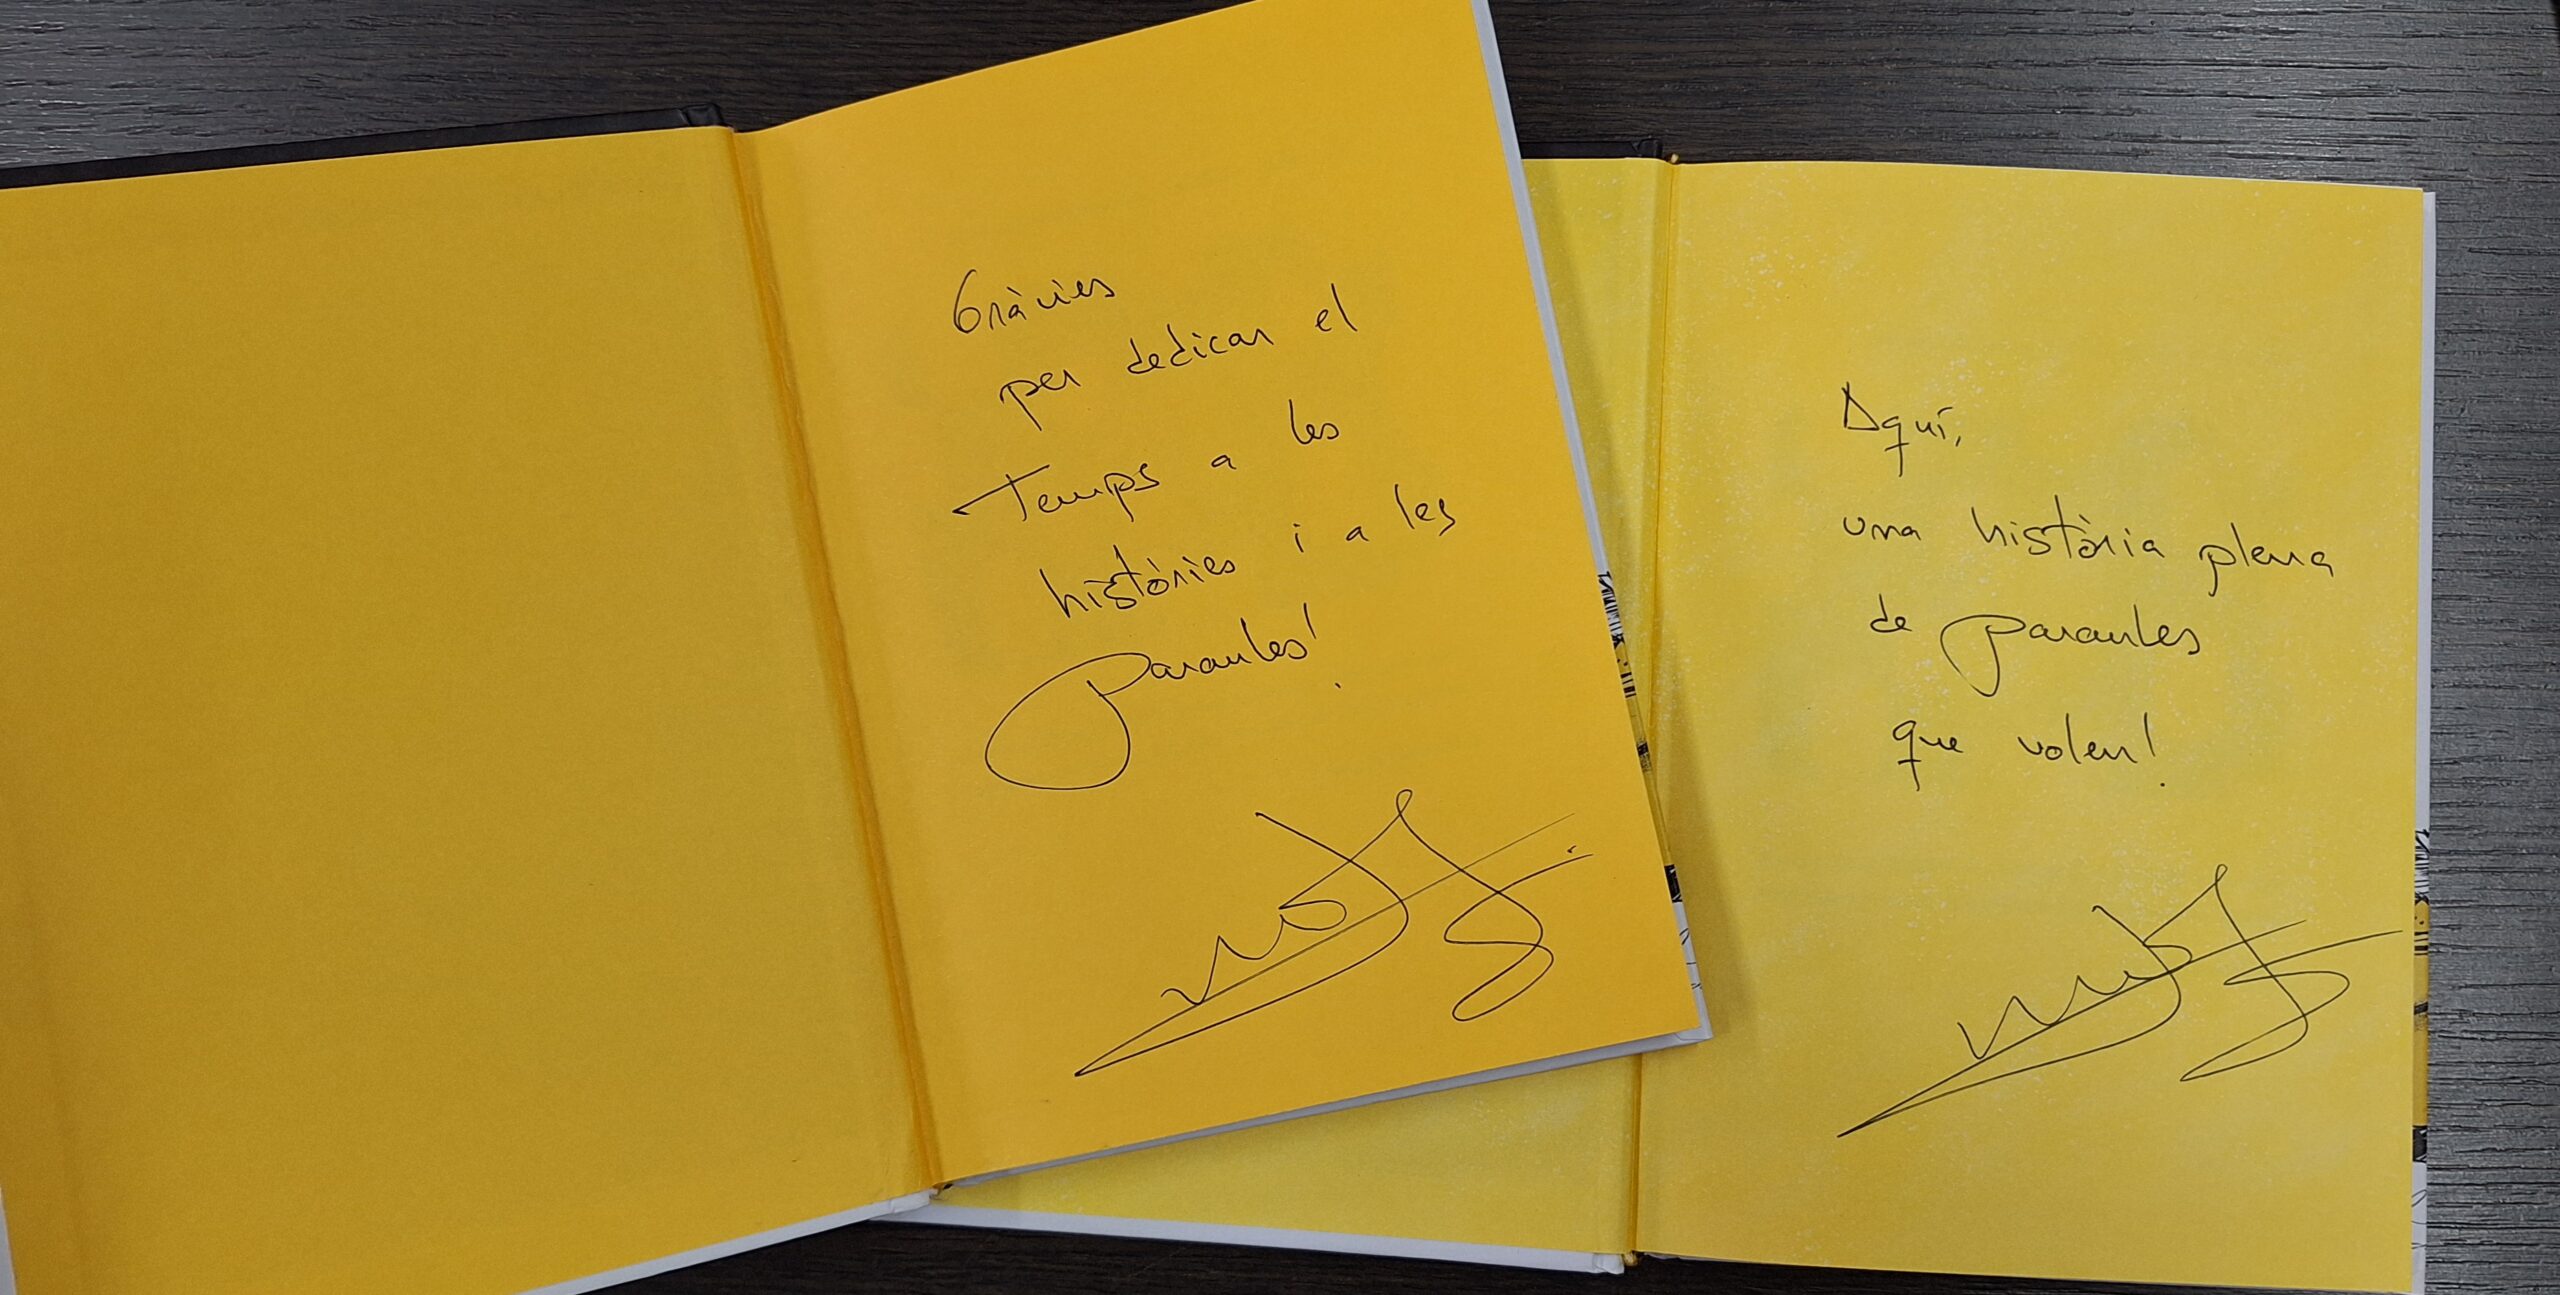 Gràcies
per dedicar el
Temps a les
històries i a les
Paraules!
Aquí,
una història plena
de paraules
que volen!